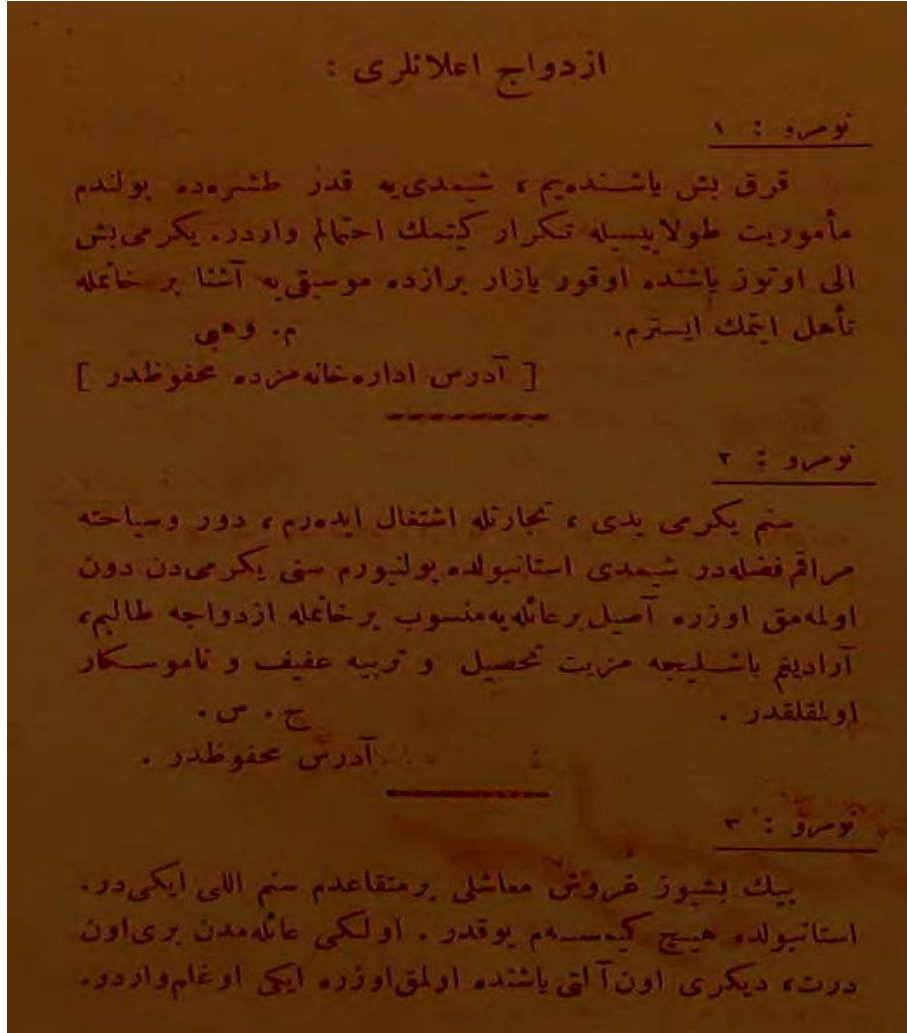 ازدواج اعلانلری :
نومرو : ١
قرق بش یاشنده‌یم ، شیمدی‌یه قدر طشره‌ده بولندم
مأموریت طولاییسیله تکرار کیتمك احتمالم واردر. یکرمی‌بش
الی اوتوز یاشنده اوقور یازار برازده موسیقی‌یه آشنا بر خانمله
تأهل ایتمك ایسترم. م. وهبی
[ آدرس اداره‌خانه‌مزده محفوظدر ]
نومرو : ٢
سنم یکرمی یدی ، تجارتله اشتغال ایده‌رم ، دور وسیاحته
مراقم‌فضله‌در شیمدی استانبولده بولنیورم سنی یکرمی‌دن دون
اولمه‌مق اوزره آصیل برعائله‌یه‌منسوب برخانمله ازدواجه طالبم،
آرادیغم باشلیجه مزیت تحصیل و تربیه عفیف و ناموسکار
اولمقلقدر . ح . ص .
آدرس محفوظدر .
نومرو : ٣
بیك بشیوز غروش معاشلی برمتقاعدم سنم اللی ایکی‌در.
استانبولده هیچ کیمسه‌م یوقدر . اولکی عائله‌مدن بری‌اون
درت، دیکری اون‌آلتی یاشنده اولمق‌اوزره ایکی اوغلم‌واردر.